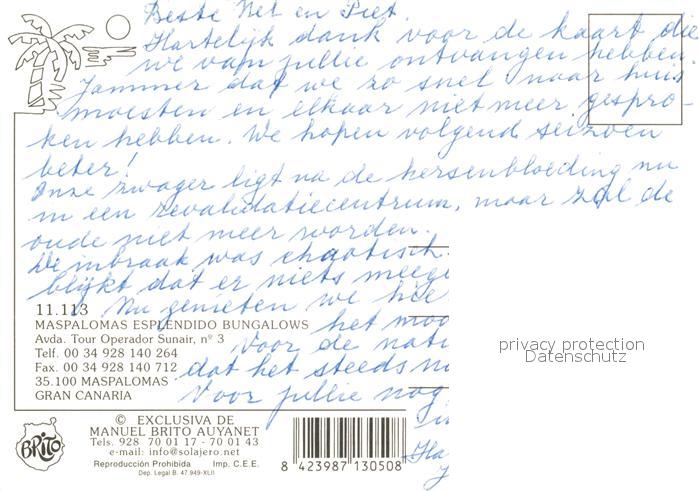 Beste Net en Piet.
Hartelijk dank voor de kaart die
we van jullie ontvangen hebben.
Jammer dat we zo snel naar huis
moesten en elkaar niet meer gespro-
ken hebben. We hopen volgend seizoen
beter!
Onze zwager ligt na de hersenbloeding nu
in een revalidatiecentrum, maar zal de
oude niet meer worden.
De inbraak was chaotisch.
blijkt dat er niets meege
Nu genieten we hie
het moo
Voor de natu
dat het steeds n
Voor jullie nog
11.113
MASPALOMAS ESPLENDIDO BUNGALOWS
Avda. Tour Operador Sunair, nº 3
Telf. 00 34 928 140 264
Fax. 00 34 928 140 712
35.100 MASPALOMAS
GRAN CANARIA
privacy protection
Datenschutz
BRITO
© EXCLUSIVA DE
MANUEL BRITO AUYANET
Tels. 928 70 01 17 - 70 01 43
e-mail: info@solajero.net
Reproducción Prohibida Imp. C.E.E.
Dep. Legal B. 47.949-XLII
8 423987 130508